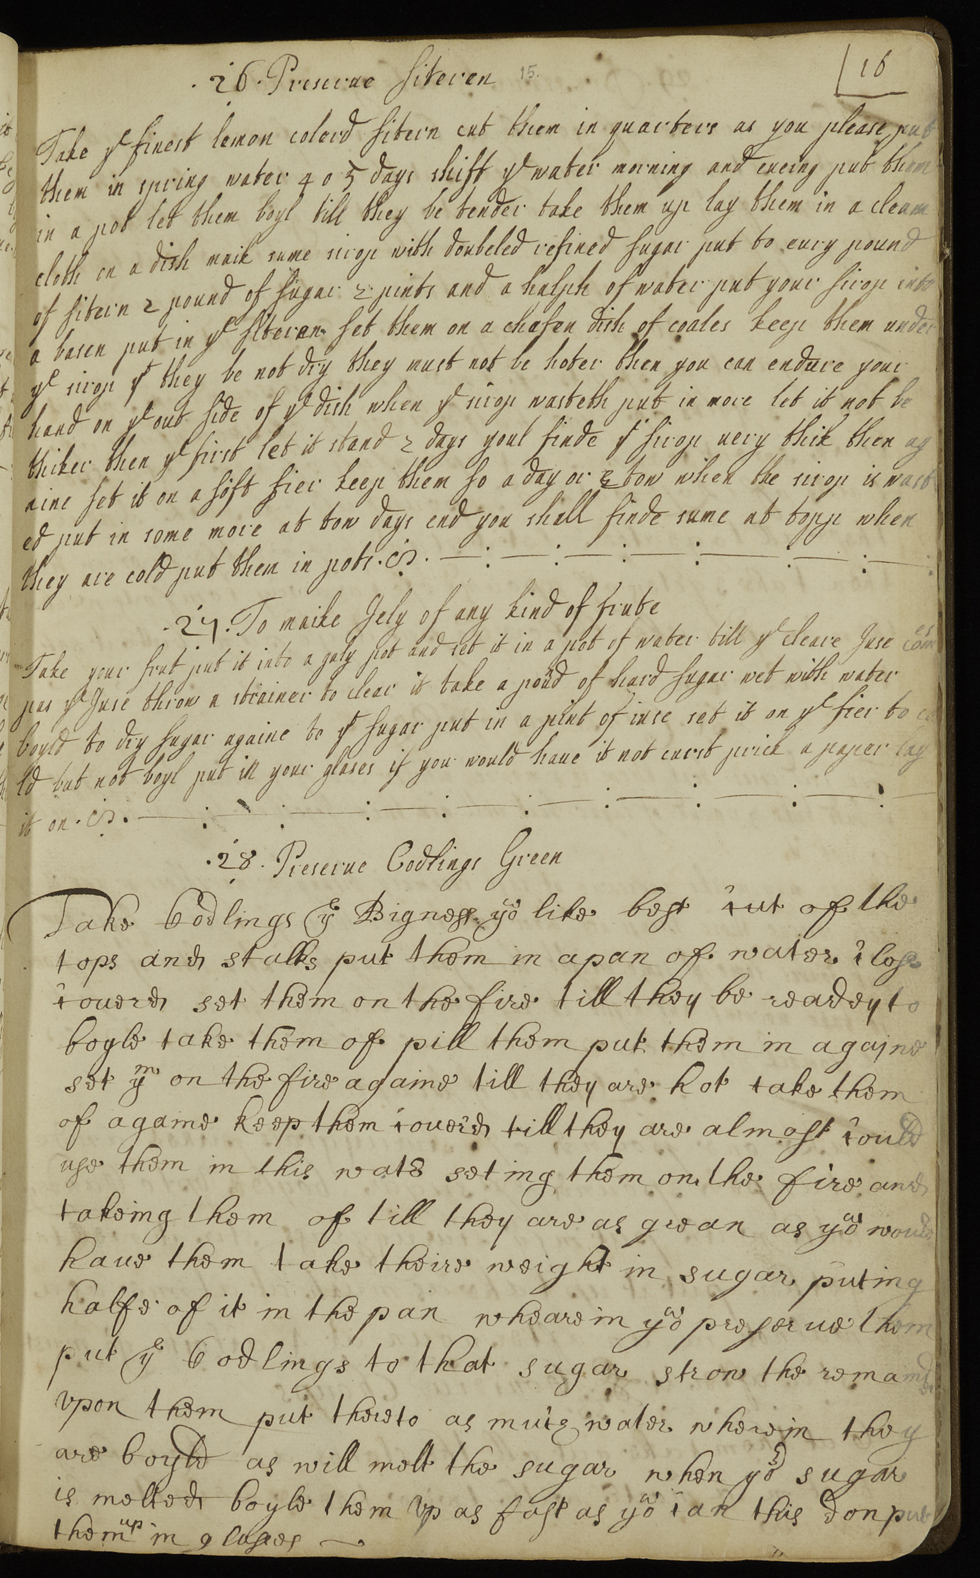 .26. Preserue Siteren 15.
16
Take ye finest lemon colerd sitern cut them in quarters as you please put
them in spring water 4 o 5 days shift ye water morning and eueing put them
in a pot let them boyl till they be tender take them up lay them in a cleane
cloth on a dish maik sume sirop with doubeled refined sugar put to eury pound
of sitern 2 pound of sugar 2 pints and a halph of water put your sirop into
a basen put in ye siteran set them on a chafen dish of coales keep them under
ye sirop yt they be not dry they must not be hoter then you can endure your
hand on ye out side of ye dish when ye sirop wasteth put in more let it not be
thiker then ye first let it stand 2 days youl finde ye sirop uery thik then ag
aine set it on a soft fier keep them so a day or tow when the sirop is wast
ed put in some more at tow days end you shall finde sume at topp when
they are cold put them in pots.
.27. To maike Jely of any kind of frute
Take your frut put it into a jaly pot and set it in a pot of water till ye cleare Juse comes
pas ye Juse throw a strainer to clear it take a poũd of hard sugar wet with water
boyld to dry sugar againe to yt sugar put in a pint of iuse set it on ye fier to
ld but not boyl put in your glases if you would haue it not curst prick a paper lay
it on.
.28. Preserue Codlings Green
Take Codlings ye Bigness you like best cut of the
tops and stalks put them in a pan of water close
couered set them on the fire till they be readey to
boyle take them of pill them put them in againe
set ym on the fire againe till they are hot take them
of againe keep them couered till they are almost could
use them in this water seting them on the fire and
takeing them of till they are as grean as you would
haue them take theire weight in sugar puting
halfe of it in the pan whearein you preserue them
put ye Codlings to that sugar strow the remand
vpon them put thereto as much water wherein they
are boyld as will melt the sugar when yd sugar
is melted boyle them vp as fast as you can this don put
them up in glases